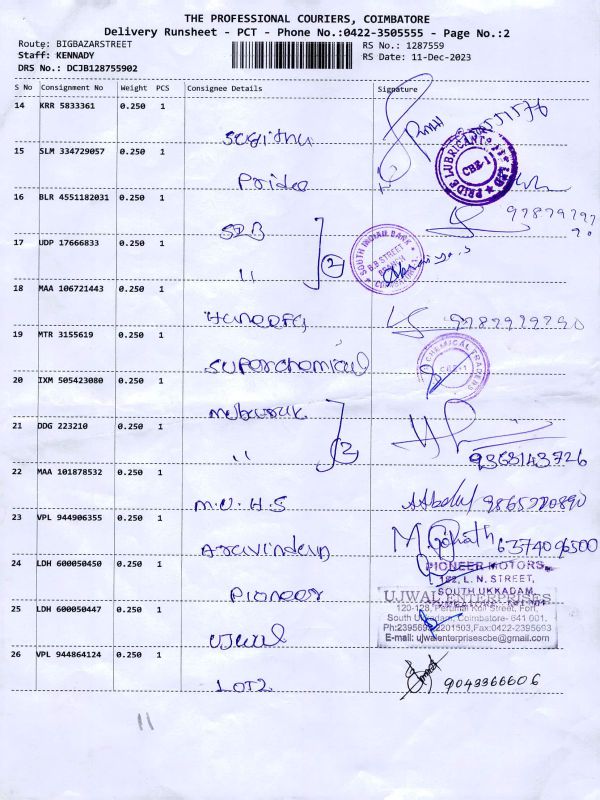 THE PROFESSIONAL COURIERS, COIMBATORE
Delivery Runsheet - PCT - Phone No.:0422-3505555 - Page No.:2
Route: BIGBAZARSTREET
RS No.: 1287559
Staff: KENNADY
RS Date: 11-Dec-2023
DRS No.: DCJB128755902
S No Consignment No Weight PCS Consignee Details Signature
14 KRR 5833361 0.250 1
15 SLM 334729057 0.250 1
Pride
PRIDE LUBRICANTS LTD
CBE-1
16 BLR 4551182031 0.250 1
SIB
17 UDP 17666833 0.250 1
11
2
SOUTH INDIAN BANK
B.B STREET
BRANCH
18 MAA 106721443 0.250 1
Haneefa
9787979790
19 MTR 3155619 0.250 1
Superchemical
CHEMICAL TRADERS
CBE-1
20 IXM 505423080 0.250 1
Mubarak
21 DDG 223210 0.250 1
11
2
9363143726
22 MAA 101878532 0.250 1
M.U.H.S
9865220890
23 VPL 944906355 0.250 1
Aravindan
M. Gopinath 6374096500
24 LDH 600050450 0.250 1
Pioneer
PIONEER MOTORS
182, L. N. STREET,
SOUTH UKKADAM,
25 LDH 600050447 0.250 1
Ujwal
UJWAL ENTERPRISES
120-128, Perumal Koil Street, Fort,
South Ukkadam, Coimbatore- 641 001.
Ph:2395692,2201503,Fax:0422-2395693
E-mail: ujwalenterprisescbe@gmail.com
26 VPL 944864124 0.250 1
LOT2
9043366606
11